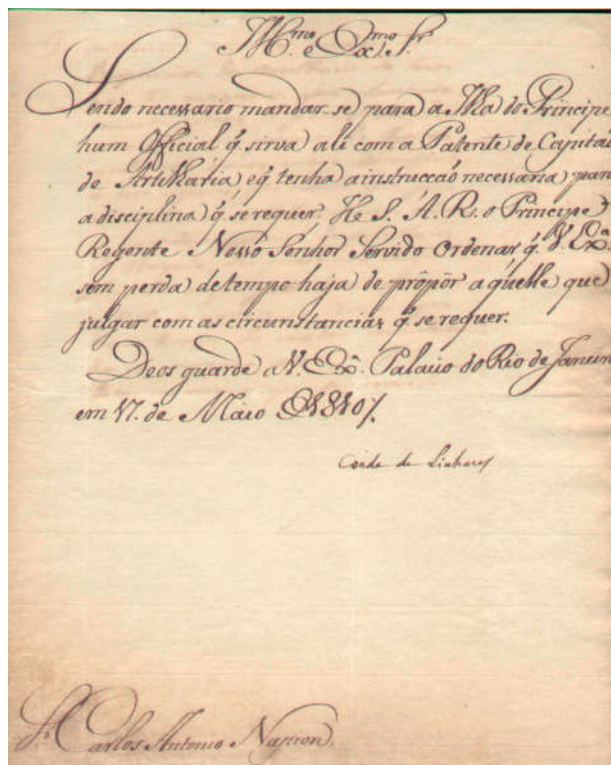 Ill.mo e Ex.mo Sr.
Sendo necessario mandar se para a Ilha do Principe
hum Official q̃ sirva ali com a Patente de Capitaõ
de Artilharia, e q̃ tenha a instrucçaõ necessaria para
a disciplina q̃ se requer: He S. A. R. o Principe
Regente Nosso Senhor Servido Ordenar q̃ V. Ex.ª
sem perda de tempo haja de propôr aquelle que
julgar com as circunstancias q̃ se requer.
Deos guarde a V. Ex.ª Palacio do Rio de Janeiro
em 17. de Maio de 1810/.
Conde de Linhares
Sr. Carlos Antonio Napion.